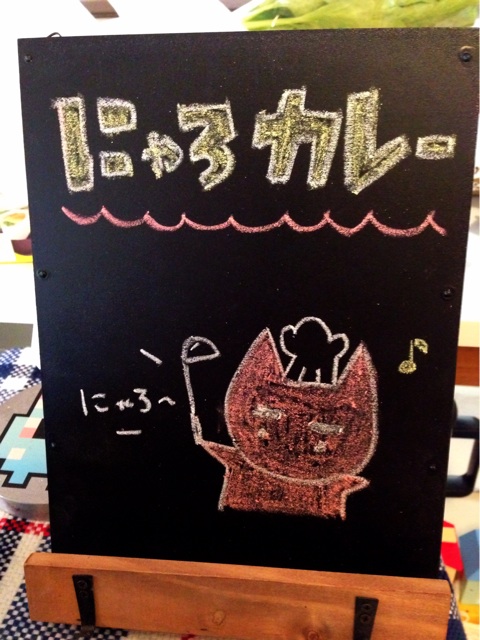 にゃろカレー
にゃろ〜